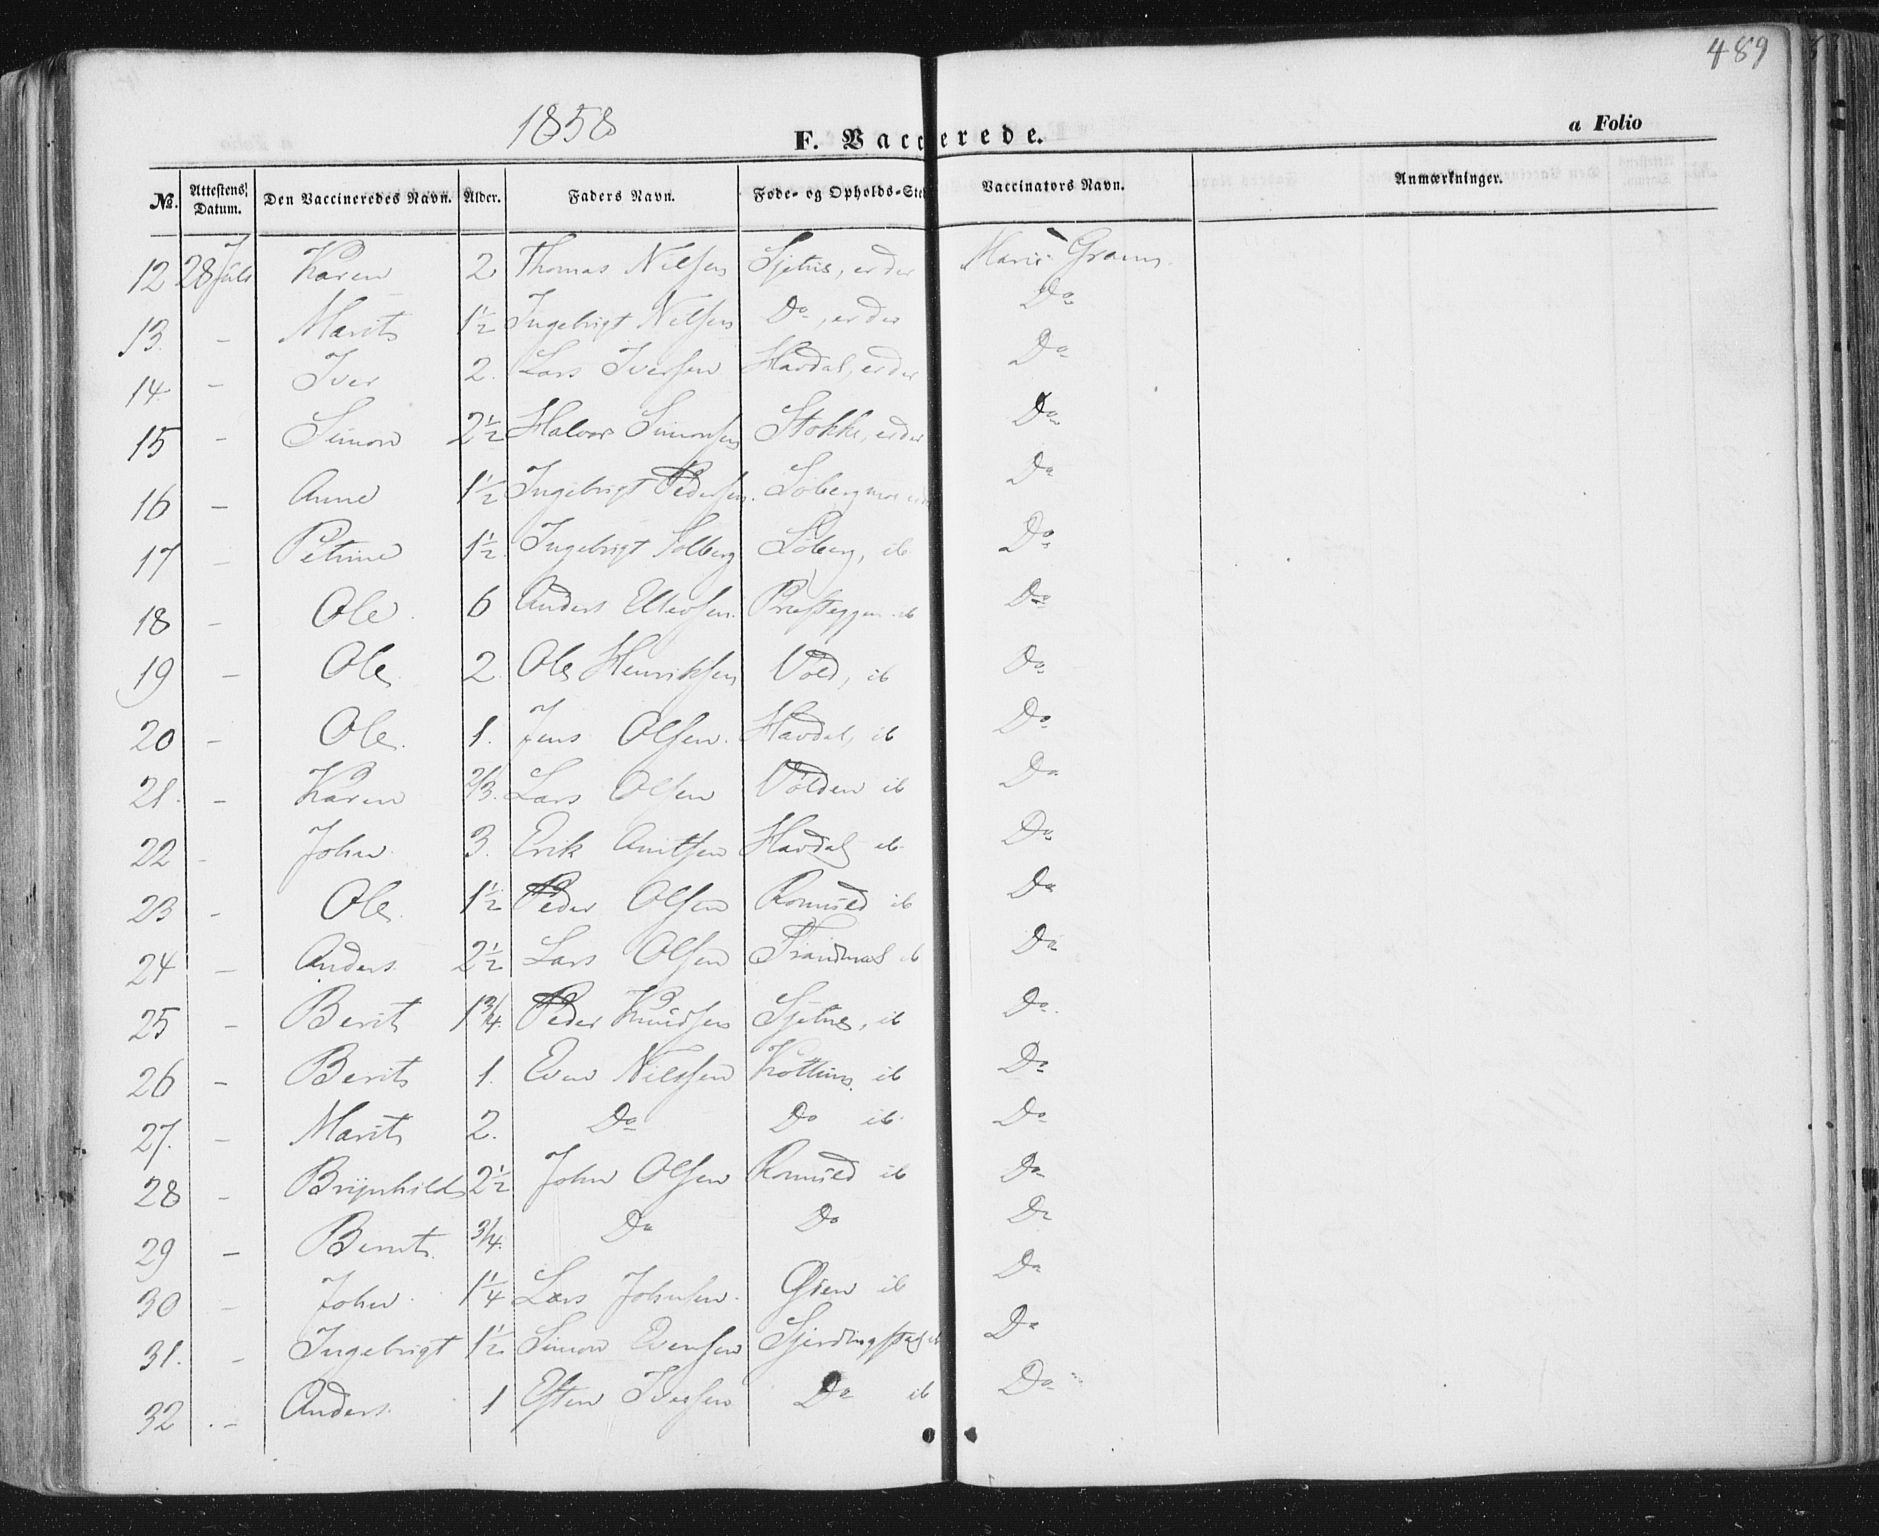 489
1858
F. Vaccerede.
a Folio
No. Attestens Datum. Den Vaccineredes Navn. Alder. Faders Navn. Føde- og Opholds-Ste Vaccinators Navn. Anmærkninger.
12 28 Juli Karen 2 Thomas Nilsen Sjetne, er der Marie Gram
13. - Marit 1½ Ingebrigt Nilsen Do, er der Do
14 - Iver 2. Lars Iversen Havdal, er der Do
15 - Simon 2½ Halvor Simonsen Stokke, er der Do
16 - Anne 1½ Ingebrigt Pedersen. Do
17 - Petrine 1½ Ingebrigt Solberg Søberg, ib Do
18 - Ole 6 Anders Ellevsen. Præsteggen ib Do
19 - Ole 2 Ole Henriksen Vold, ib Do
20 - Ole. 1. Jens Olsen. Havdal, ib Do
21. - Karen 2/3. Lars Olsen Volden ib Do
22 - John 3. Erik Havdal ib Do
23 - Ole. 1½ Peder Olsen ib Do
24 - Anders 2½ Lars Olsen ib Do
25 - Berit 1¾ Peder Knudsen Sjetne, ib Do.
26 - Berit 1. Even Nilsen ib Do
27. - Marit 2. Do Do ib. Do
28 - Brynhild 2½ John Olsen ib Do
29 - Berit ¾. Do Do Do
30 - John 1¼ Lars Johnsen. Øien ib Do
31. - Ingebrigt 1½ Simon Evensen Do
32 - Anders. 1 Esten Iversen Do ib Do